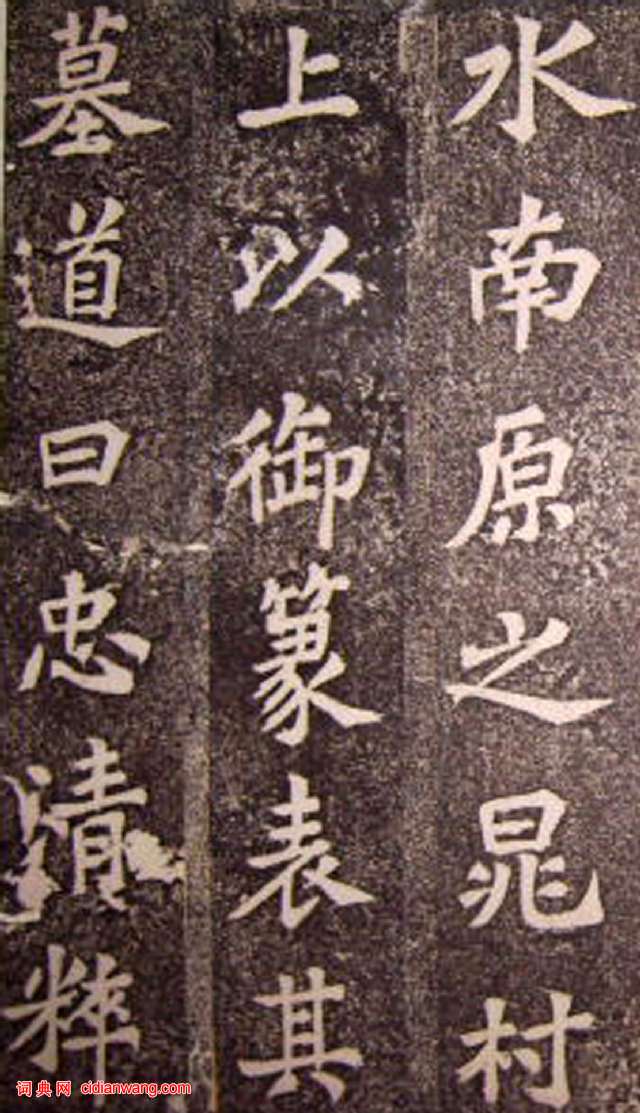 水南原之晁村
上以御篆表其
墓道曰忠清粹
词典网 cidianwang.com